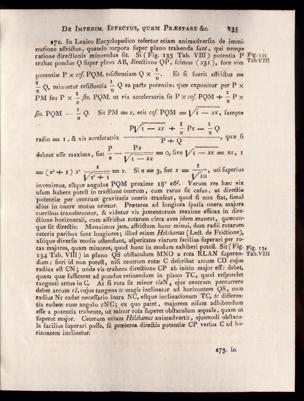 De Impedim. Effectus, quem Præstare &c. 235
272. In Lexico Encyclopedico refertur etiam animadversio de imminutione affrictus, quando corpora super plano trahenda sunt, qui nempe
ratione directionis minuendus sit. Si (Fig. 135 Tab. VIII) potentia P
trahat pondus Q super plano AB, directione QP, scimus (231), fore vim
Fig. 135
Tab. VIII
potentiæ P × cos. PQM, resistentiam Q × 1/n. Et si fuerit affrictus =
1/n Q, minuetur resistentia 1/n Q ea parte potentiæ, quæ exponitur per P ×
PM seu P × 1/n sin. PQM, ut vis acceleratrix sit P × cos. PQM + 1/n P ×
sin. PQM — 1/n Q. Sit PM = x, erit cos. PQM = √1 — xx, sumpto
radio = 1, & vis acceleratrix P√1 — xx + 1/n Px — 1/n Q / P + Q, quæ si
debeat esse maxima, fiet P/n — Px/√1 — xx = 0, sive √1 — xx = nx, 1
= (n² + 1) x² 1/√n² + 1 = x. Si n = 3, fiet x = 1/√10, uti superius
invenimus, estque angulus PQM proxime 18° 26′. Verum res hæc vix
usum habere potest in
potentiæ per centrum gravitatis oneris transeat, quod si non fiat, simul
alius in onere motus oretur. Præterea ad longiora spatia onera magna
curribus transferuntur, & videtur vis jumentorum maxime efficax in directione horizontali, cum affrictus rotarum circa axes idem maneat, quæcunque sit directio. Monuimus jam, affrictum hunc minui, dum radii rotarum
ceteris paribus sunt longiores; illud etiam Helshamus (Lect. de Frictione),
aliique diversis modis ostendunt, asperitates viarum facilius superari per rotas majores, quam minores, quod hunc in modum exhiberi potest. Sit (Fig.
134 Tab. VIII) in plano QS obstaculum MNO a rota KLAN superandum;
Fig. 134
Tab. VIII
radius sit CN; unde vis trahens directione CP ab initio major esse debet,
quam quæ sufficeret ad pondus retinendum in plano TC, quod respondet
tangenti arcus in C. At si rota sit minor
debet arcum cl, cujus tangens tc magis inclinatur ad horizontem QS, cum
radius Nc cadat necessario intra NC, estque inclinationum TC, tc differentia eadem cum angulo cNC; ex quo patet, majorem nisum adhibendum
esse a potentia trahente, ut minor rota superet obstaculum æquale, quam ut
superet major. Ceterum etiam Helshamus animadvertit, ejusmodi obstacula facilius superari posse, si prætensa directio potentiæ CP versus C ad horizontem inclinetur.
273. In